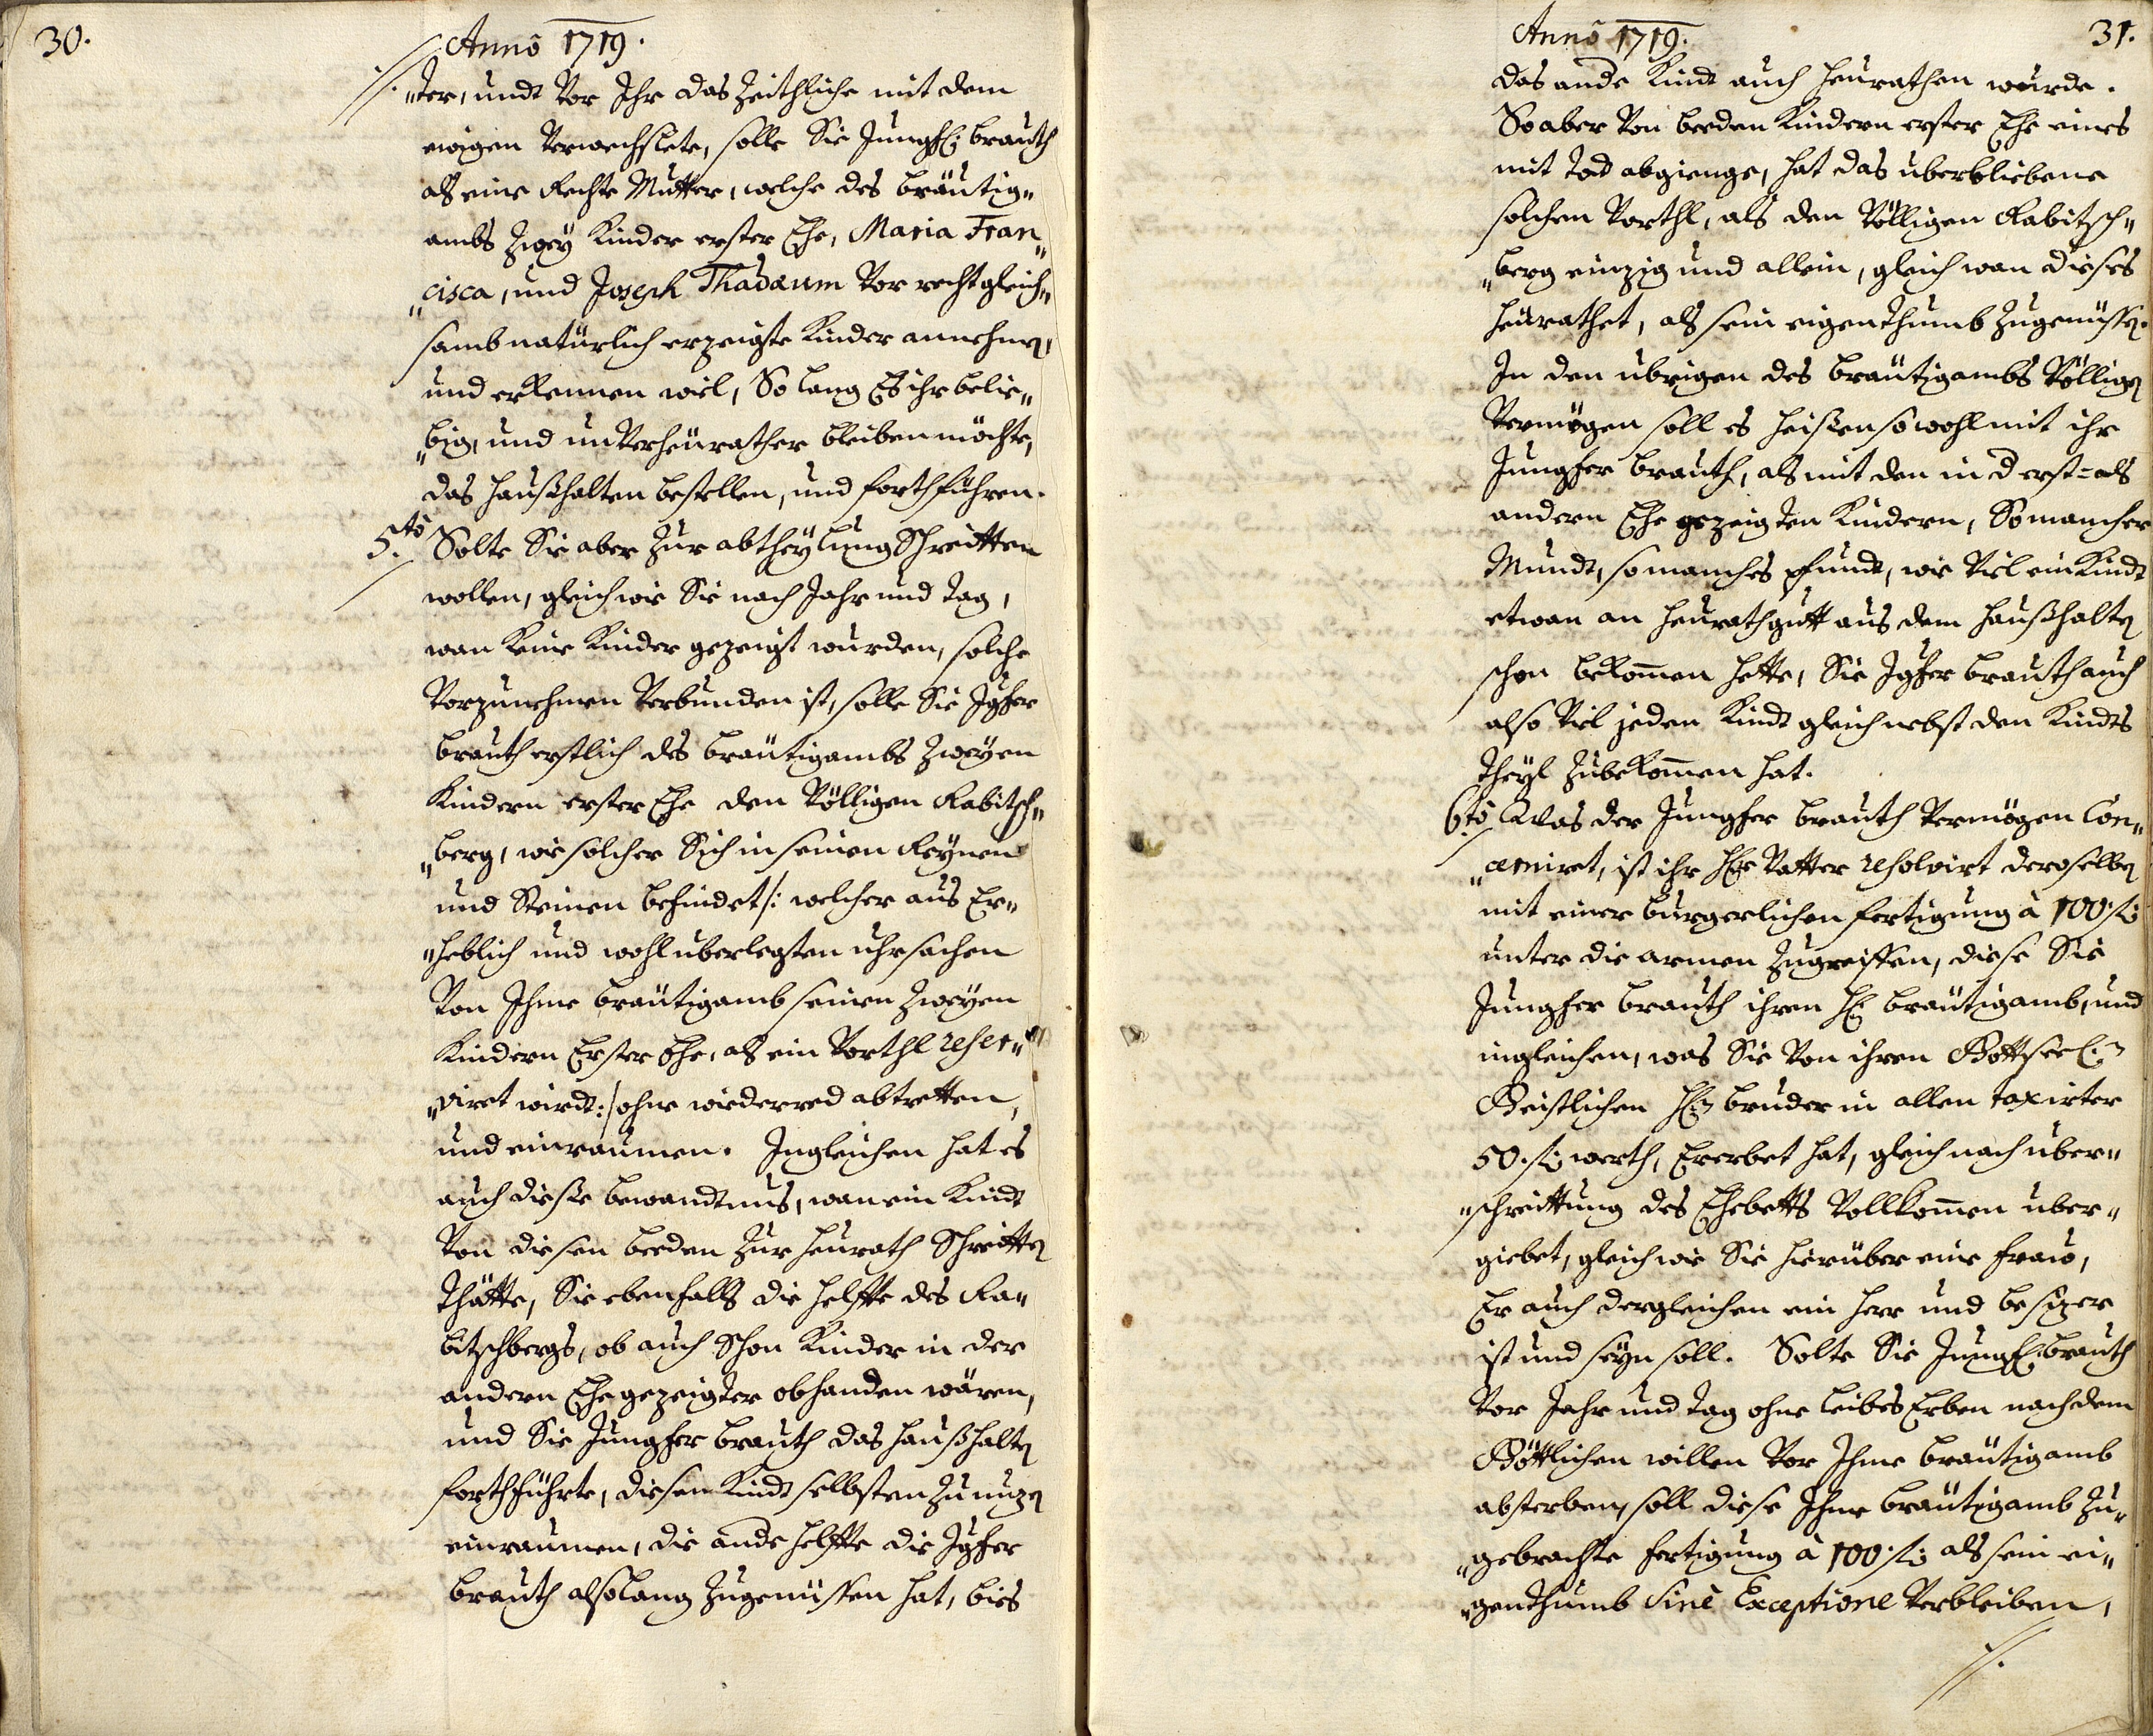 30.
Anno 1719.
//. "ter, undt vor Ihr das Zeithliche mit dem
ewigen verwechslete, solle Sie Jungf: brauth
als eine rechte Mutter, welche des bräutig"
ambs zwey Kinder erster Ehe, Maria Fran"
"cisca, und Joseph Thadæum vor recht gleich"
samb natürlich erzeigte Kinder annehmen,
und erkennen wil, So lang Es ihr belie"
"big, und unverheürather bleiben möchte,
das haußhalten bestellen, und forthführen.
5.to Solte Sie aber zur abtheylung Schreitten
wollen, gleichwie Sie nach Jahr und tag,
wan keine Kinder gezeigt wurden, solche
vorzunehmen verbunden ist, solle Sie Jgfer
brauth erstlich des bräutigambs zweyen
Kindern erster Ehe den völligen Rabitsch"
"berg, wie solcher Sich in seinen Reynen
und Steinen befindet /: welcher aus Er"
"heblich und wohl uberlegten uhrsachen
von Ihme bräutigamb seinen zweyen
Kindern Erster Ehe, als ein Vorthl reser"
"viret wirdt :/ ohne wiederred abtretten,
und einraumen. Ingleichen hat es
auch dieße bewandtnus, wan ein Kindt
von diesen beeden zur heurath Schreitten
thätte, Sie ebenfalls die helffte des Ra"
bitschbergs, ob auch Schon Kinder in der
andern Ehe gezeigter obhanden wären,
und Sie Jungfer brauth das haußhalten
forthführte, diesem Kindt selbsten zu nuzen
einraumen, die ande helffte die Jgfer
brauth also lang zugenüssen hat, bies
31.
Anno 1719.
das ande Kindt auch heurathen wurde.
So aber von beeden Kindern erster Ehe eines
mit Tod abgienge, hat das uberbliebene
solchen Vorthl, als den völligen Rabitsch"
"berg einzig und allein, gleich wan dieses
heürathet, als sein eigenthumb zugenüssen.
In den ubrigen des bräutigambs völligen
Vermögen soll es heißen sowohl mit ihr
Jungfer brauth, als mit den in d erst= als
andern Ehe gezeigten Kindern, So mancher
Mundt, so manches pfundt, wie viel ein Kindt
etwan an heurathgutt aus dem haußhalten
schon bekommen hette, Sie Jgfer brauth auch
also viel jeden Kindt gleich nebst den Kindts
theyl zubekommen hat.
6to Was der Jungfer brauth vermögen Con"
"cerniret, ist ihr Hr Vatter resolvirt deroselben
mit einer burgerlichen fertigung à 100 f:
unter die armen zugreiffen, diese Sie
Jungfer brauth ihren H: bräutigamb, und
ingleichen, was Sie von ihren Gottseel:n
Geistlichen H:n bruder in allen taxirter
50. f: werth, Ererbet hat, gleich nach uber"
"schreittung des Ehebetts vollkommen uber"
giebet, gleich wie Sie hierüber eine fraw,
Er auch dergleichen ein Herr und besizer
ist und seyn soll. Solte Sie Jungf: brauth
vor Jahr und tag ohne leibes Erben nach dem
Göttlichen willen vor Ihme bräutigamb
absterben, soll diese Ihme bräutigamb zu"
"gebrachte fertigung à 100 f: als sein ei"
"genthumb Sinè Exceptione verbleiben,
//.